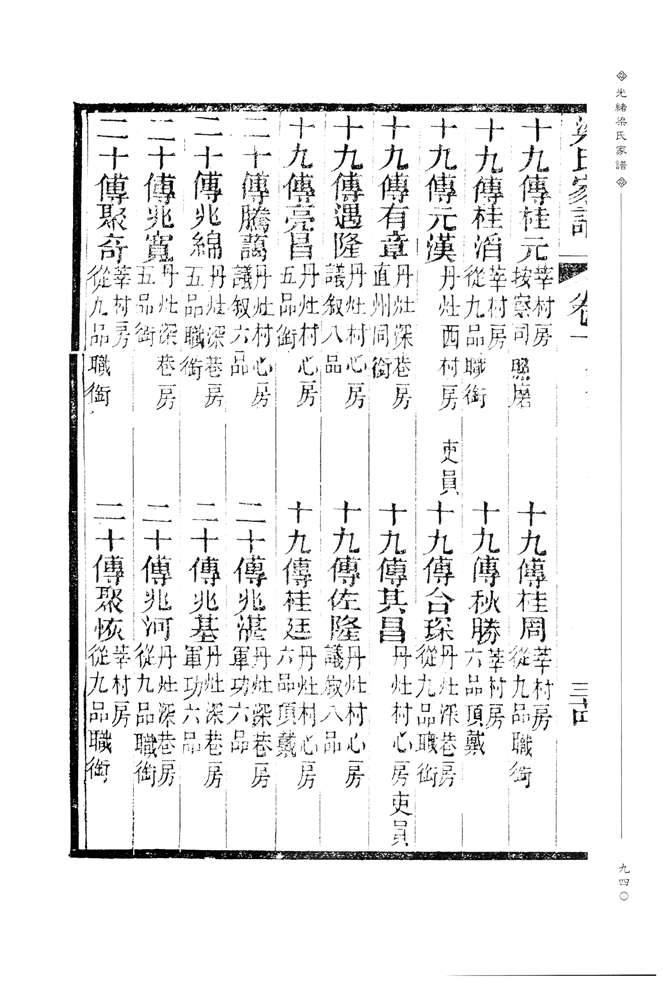 光緒梁氏家譜
梁氏家譜 卷一
十九傳桂元 莘村房 按察司照磨
十九傳桂周 莘村房 從九品職銜
十九傳桂滔 莘村房 從九品職銜
十九傳秋勝 莘村房 六品頂戴
十九傳元漢 丹灶西村房 吏員
十九傳台琛 丹灶深巷房 從九品職銜
十九傳有章 丹灶深巷房 直州同銜
十九傳其昌 丹灶村心房 吏員
十九傳遇隆 丹灶村心房 議敘八品
十九傳佐隆 丹灶村心房 議敘八品
十九傳亮昌 丹灶村心房 五品銜
十九傳桂廷 丹灶村心房 六品頂戴
二十傳騰藹 丹灶村心房 議敘六品
二十傳兆湛 丹灶深巷房 軍功六品
二十傳兆綿 丹灶深巷房 五品職銜
二十傳兆基 丹灶深巷房 軍功六品
二十傳兆寬 丹灶深巷房 五品銜
二十傳兆河 丹灶深巷房 從九品職銜
二十傳聚奇 莘村房 從九品職銜
二十傳聚恢 莘村房 從九品職銜
九四〇